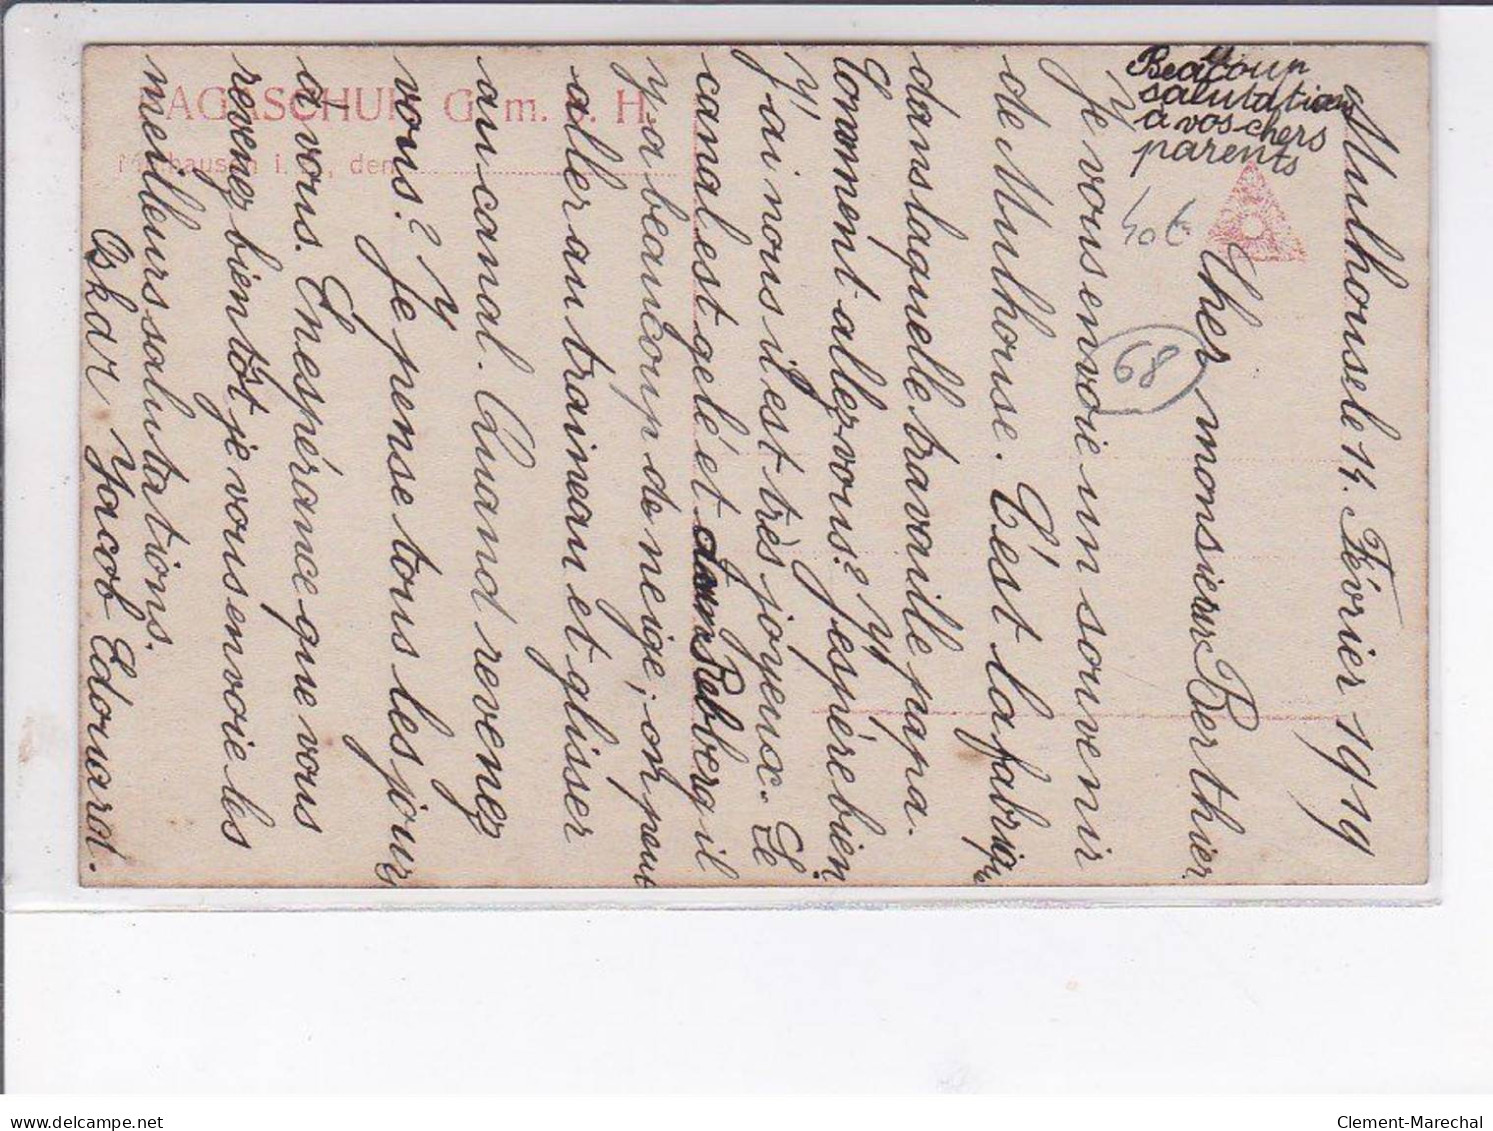 Mulhouse le 14. Février 1919
Cher monsieur Berthier.
Je vous envoie un souvenir
de Mulhouse. C'est la fabrique
dans laquelle travaille papa.
Comment allez-vous? J'espère bien
J'ai nous il est très joyeux. Le
canal est gelé et dans Rebberg il
y a beaucoup de neige; on peut
aller au traineau et glisser
au canal. Quand revenez
vous? Je pense tous les jours
à vous. En espérance que vous
revenez bientôt je vous envoie les
meilleurs salutations.
Oskar Jacob Edouard.
Beaucoup
salutations
à vos chers
parents
40€
68
AGASCHUK G. m. b. H.
hausen i. , den
www.delcampe.net
Clement-Marechal